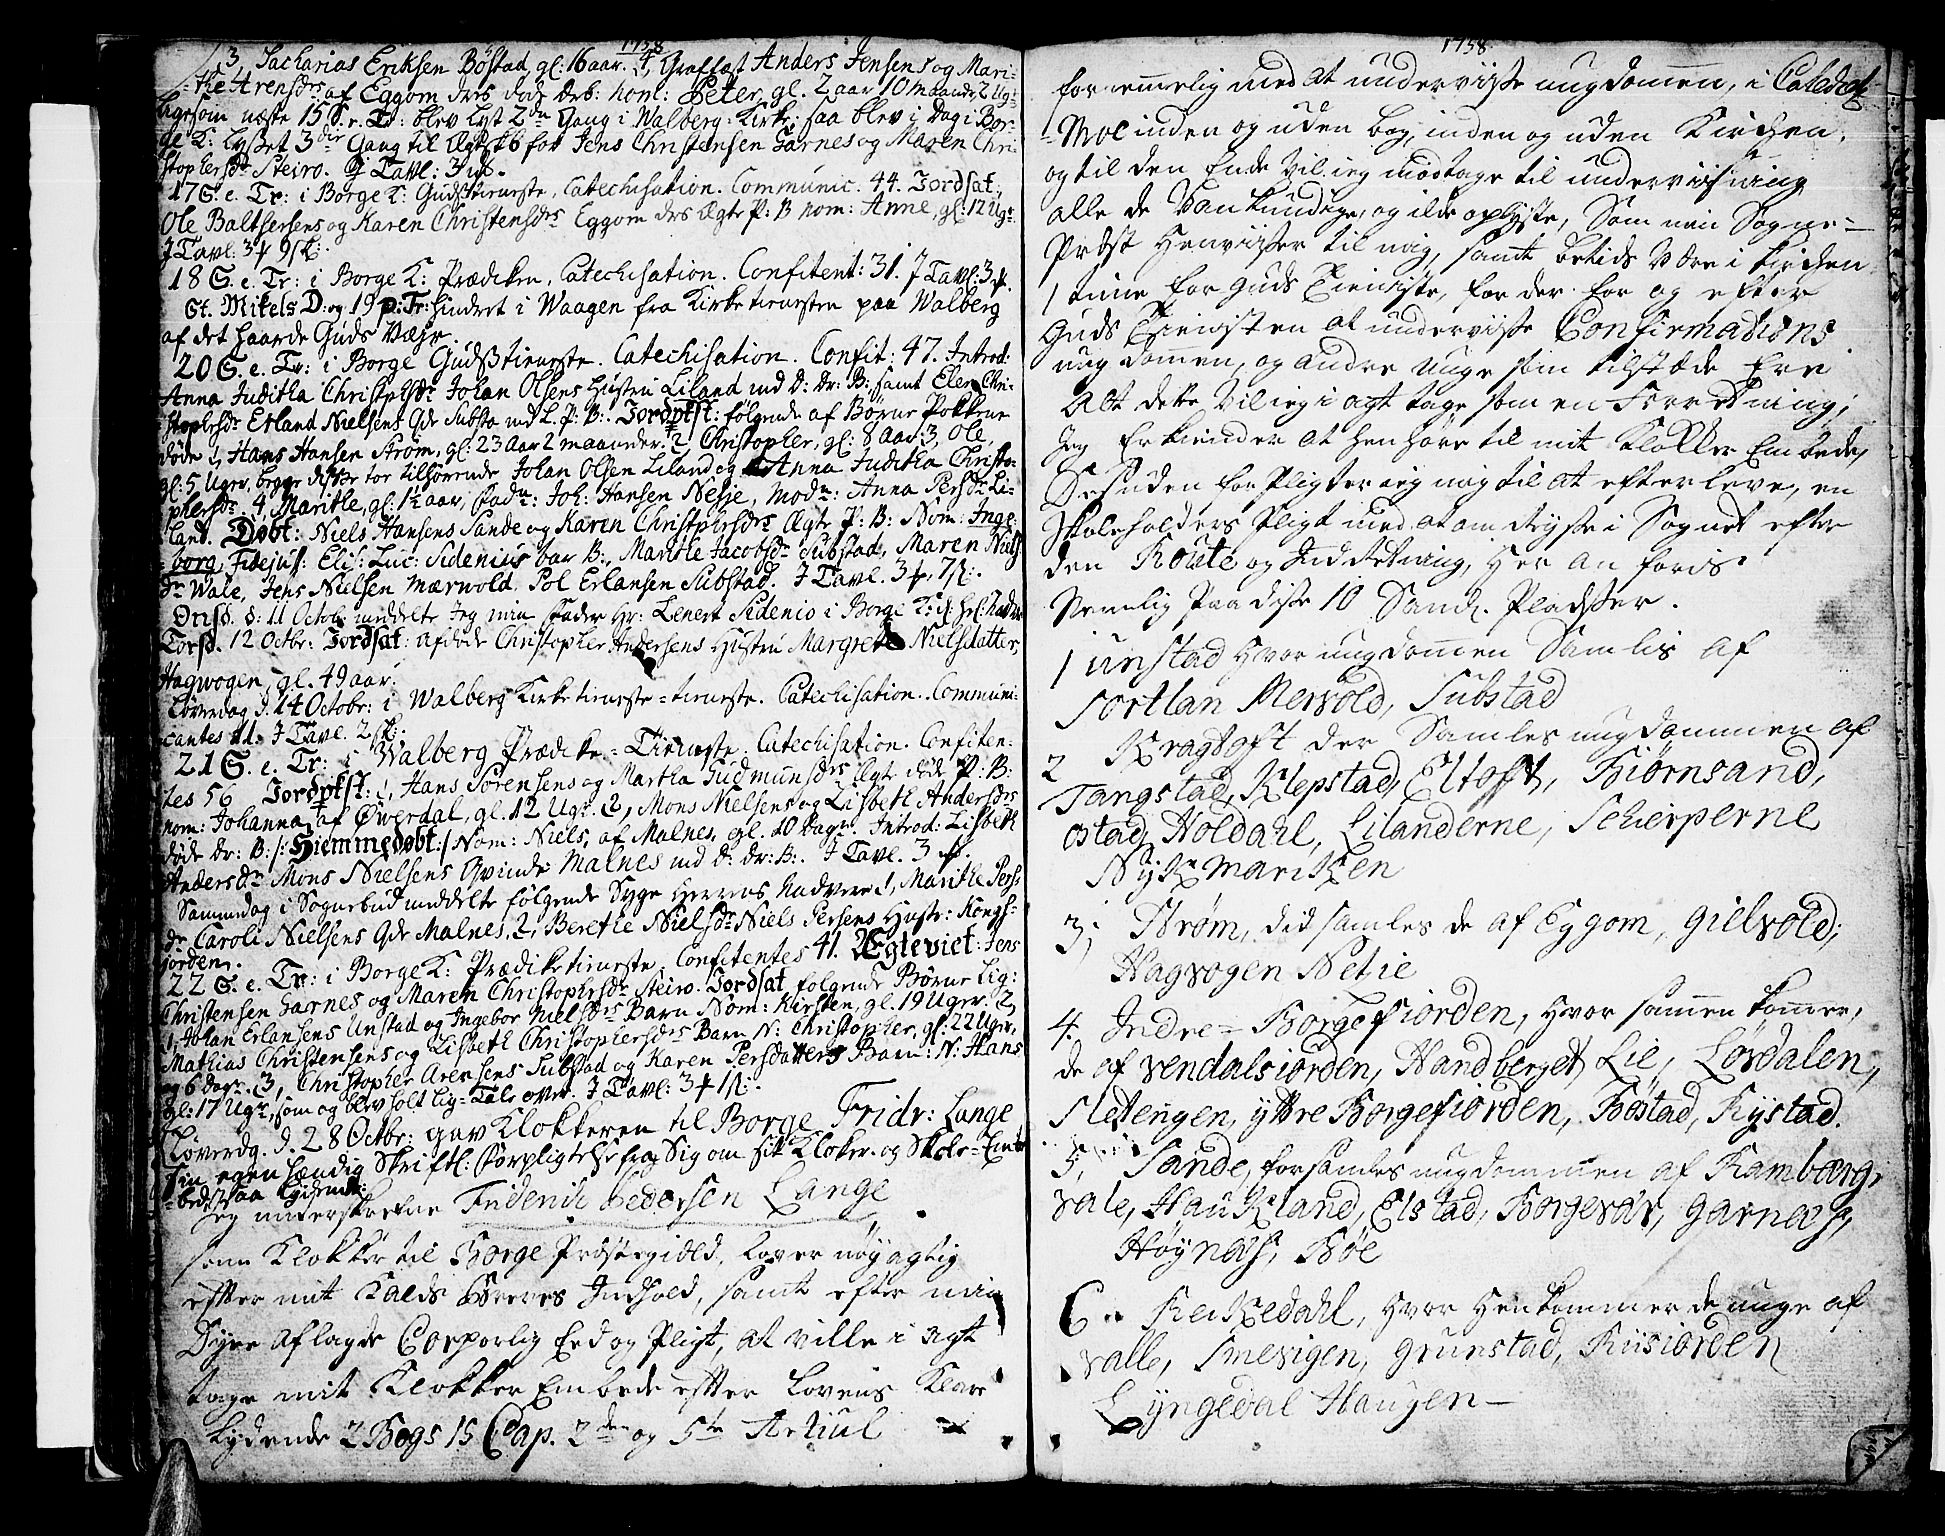 1758
3, Zacharias Eriksen Böstad, gl: 16 aar. 4, Graffæst Anders Jensens og Mari-
the Arensdrs af Eggom drs døde drb: nom: Peter, gl. 2 aar 10 maander 2 Ugr.
ligesom næste 15 S. e. Tr: blev lyst 2den Gang i Walberg Kirke: saa blev i Dag i Bor-
ge K: lyset 3die Gang til Ægtesk6 for Jens Christensen Garnes og Maren Chri-
stophersdr Steiro. I Tavl: 3
17 S. e. Tr: i Borge K: Gudstieneste, Catechisation. Communic. 44. Jordsat:
Ole Balthersens og Karen Christensdrs Eggom drs Ægte P: B nom: Anne, gl: 12 Ugr.
I Tavl: 3 9 sk:.
18 S. e. Tr: i Borge K: Prædiken, Catechisation. Confitent: 31. I Tavl: 3
St. Mikels D: og 19 p: Tr: hindret i Waagen fra Kirketienesten paa Walberg
af det haarde Guds Væhr.
20 S. e. Tr: i Borge Gudstieneste. Catechisation. Confit: 47. Introd:
Anna Juditha Christphsdr Johan Olsens Hustru Liland md D: Dr: B: samt Elen Chri-
stophersdr Erland Nielsens Qde Substa md L. P. B:. Jordptst: følgende af Børne Pokkene
døde 1, Hans Hansen Strøm, gl: 23 Aar 2 maaneder. 2, Christopher, gl: 8 Aar 3, Ole,
gl: 5 Uger, begge disse to tilhørende Johan Olsen Liland og Anna Juditha Christo-
phersdr. 4. Marithe, gl: 1½ aar, Fadr: Joh: Hansen Nesje, Modr: Anna Persdr Li-
land. Døbt: Niels Hansens Sande og Karen Christphersdrs Ægte P: B: Nom: Inge-
borg, Fidejus: Elis: Luc: Sidenius bar B., Marithe Jacobsdr Substad, Maren Niels
dr Wale, Jens Nielsen Mærwold. Pol Erlansen Substad. I Tavl. 3, 7 sk:.
Onsd. d: 11 Octob: meddelte Jeg min Fader Hr: Lenert Sidenio i Borge K: H: Nadver
Torsd. 12 Octbr: Jordsat: afdøde Christopher Andersens Hustru Margrete Nielsdatter,
Hagwogen, gl. 49 aar.
Løverdag d. 14 Octobr: i Walberg Kirketieneste-tieneste. Catechisation. Communi-
cantes 11. I Tavl. 2 sk:.
21 S. e. Tr: i Walberg Prædike-Tieneste. Catechisation. Confiten-
tes 56 Jordptst: 1, Hans Sörensens og Martha Gudmunsdrs Ægte døde P: B:
nom: Johanna, af Øwerdal, gl. 12 Ugr. 2, Mons Nielsens og Lisbeth Andersdrs
døde dr: B: /: Hiemmedøbt :/ Nom: Niels, af Malnes, gl. 10 Dagr. Introd: Lisbeth
Andersdr Mons Nielsens Qvinde Malnes md d: dr: B:. I Tavl. 3
Sammedag i Sognebud meddelte følgende Syge Herrens Nadvere 1, Marithe Pers-
dr Caroli Nielsens Qde Malnes, 2, Berethe Nielsdr Niels Persens Hustr: Kongs-
jorden.
22 S. e. Tr: i Borge K: Prædiketieneste, Confitentes 41. Ægteviet: Jens
Christensen Garnes og Maren Christophersdr Steiro. Jordsat følgende Børne Lig:
1, Johan Erlansens Unstad og Ingebor Nielsdrs Barn Nom: Kirsten, gl. 19 Uger. 2,
Mathias Christensens og Lisbeth Christophersdrs Barn N: Christopher, gl: 22 Uger,
og 6 Dagr. 3, Christopher Arensens Substad og Karen Persdatters Barn: N: Hans
gl: 17 Ugr, som og blev holt Lig-Tale over. I Tavl: 3 1 sk:.
Løverdg. d. 28 Octbr: gav Klokkeren til Borge Fridr: Lange
sin egen hændig Skriftl: Forpligtelse fra Sig om sit Kloker- og Skole-Em-
bede saa lydende:
Jeg underskrefne Friderich Pedersen Lange
som Klokker til Borge Præstegield, Lover nøyagtig
efter mit Kalds Breves Indhold, samt efter min
Dyre aflagde Corporlig Eed og Pligt, at ville i agt
tage mit Klokker Embede efter Lovens Klare
lydende 2 Bogs 15 Cap. 2den og 5te Articul
1758
fornemelig med at underviisse ungdomen, i Catechet
-Moe inden og uden bog, inden og uden Kirchen,
og til den Ende vil ieg modtage til underviisning
alle de Vankundige, og ilde oplyste, Som min Sogne-
Præst Henviisser til mig, samt betids være i Kirchen
1 time for Guds Tieniste, for der for og efter
Guds Tienisten at underviisse Confirmations
ungdomen, og andre unge som tilstæde Ere
Alt dette vil ieg i agt tage som en Forretning,
Jeg Erkiender at hen høre til mit Klokker Embede,
Desuden forpligter ieg mig til at efterleve, en
Skoleholders Pligt med at omreysse i Sognet efter
den Route og Inddeling, her an føris.
Nemlig Paa disse 10 Saml. Pladsser.
1 unstad Hvor ungdomen Samlis af
Sortlan Mervold, Substad
2 Kragtoft der Samles ungdommen af
Tangstad, Klepstad, Eltoft, Biørnsand,
ostad, Holdahl, Lilanderne, Schierperne
Nykmarken
3, Strøm, did samles de af Eggom, gielvold,
Hagvogen Netie
4. Indre-Borgefiorden, Hvor sammen komer,
de af vendalsiorden, Handberget Lie, Lørdalen,
Sletengen, yttre Borgefiorden, Bøstad, Rystad.
5, Sande, forsamles ungdommen af Ramborg,
vale, Haukland, Elstad, Borgevær, garnæs,
Høynæs, Bøe
6.. Reikedahl, Hvor Henkommer de unge af
valle, Smevigen, grunstad, Riisiorden
Lyngedal Haugen-